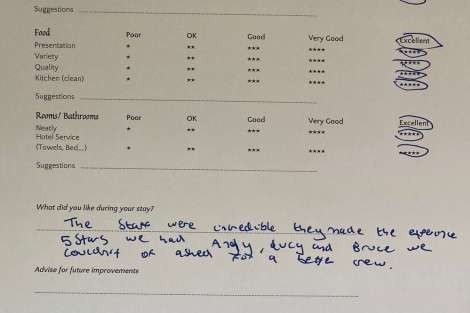 Suggestions
Food Poor OK Good Very Good Excellent
Presentation * ** *** **** *****
Variety * ** *** **** *****
Quality * ** *** **** *****
Kitchen (clean) * ** *** **** *****
Suggestions
Rooms/ Bathrooms Poor OK Good Very Good Excellent
Neatly * ** *** **** *****
Hotel Service
(Towels, Bed...) * ** *** **** *****
Suggestions
What did you like during your stay?
The staff were incredible they made the experience
5 stars we had Andy, Lucy and Bruce we
couldn't of asked for a better crew.
Advise for future improvements